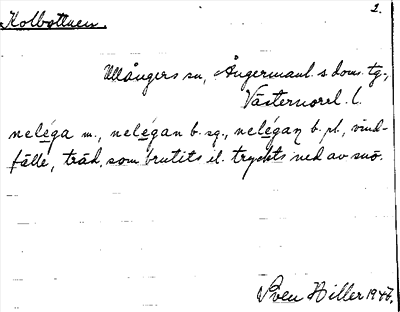 2.
Kolbottnen.
Ullångers sn, Ångermanl. s dom. tg.,
Västernorrl. l.
neléga m., nelégan b. sg., nelégaṇ b. pl., vind-
fälle, träd, som brutits el. tryckts ned av snö.
Sven Hiller 1946.